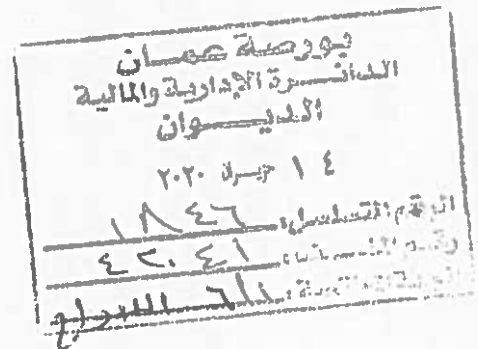 بورصة عمان
الدائرة الإدارية والمالية
الديوان
١٤ حزيران ٢٠٢٠
الرقم المتسلسل: ١٨٤٦
رقم الملف: ٤٢٠٤١
الجهة المختصة: